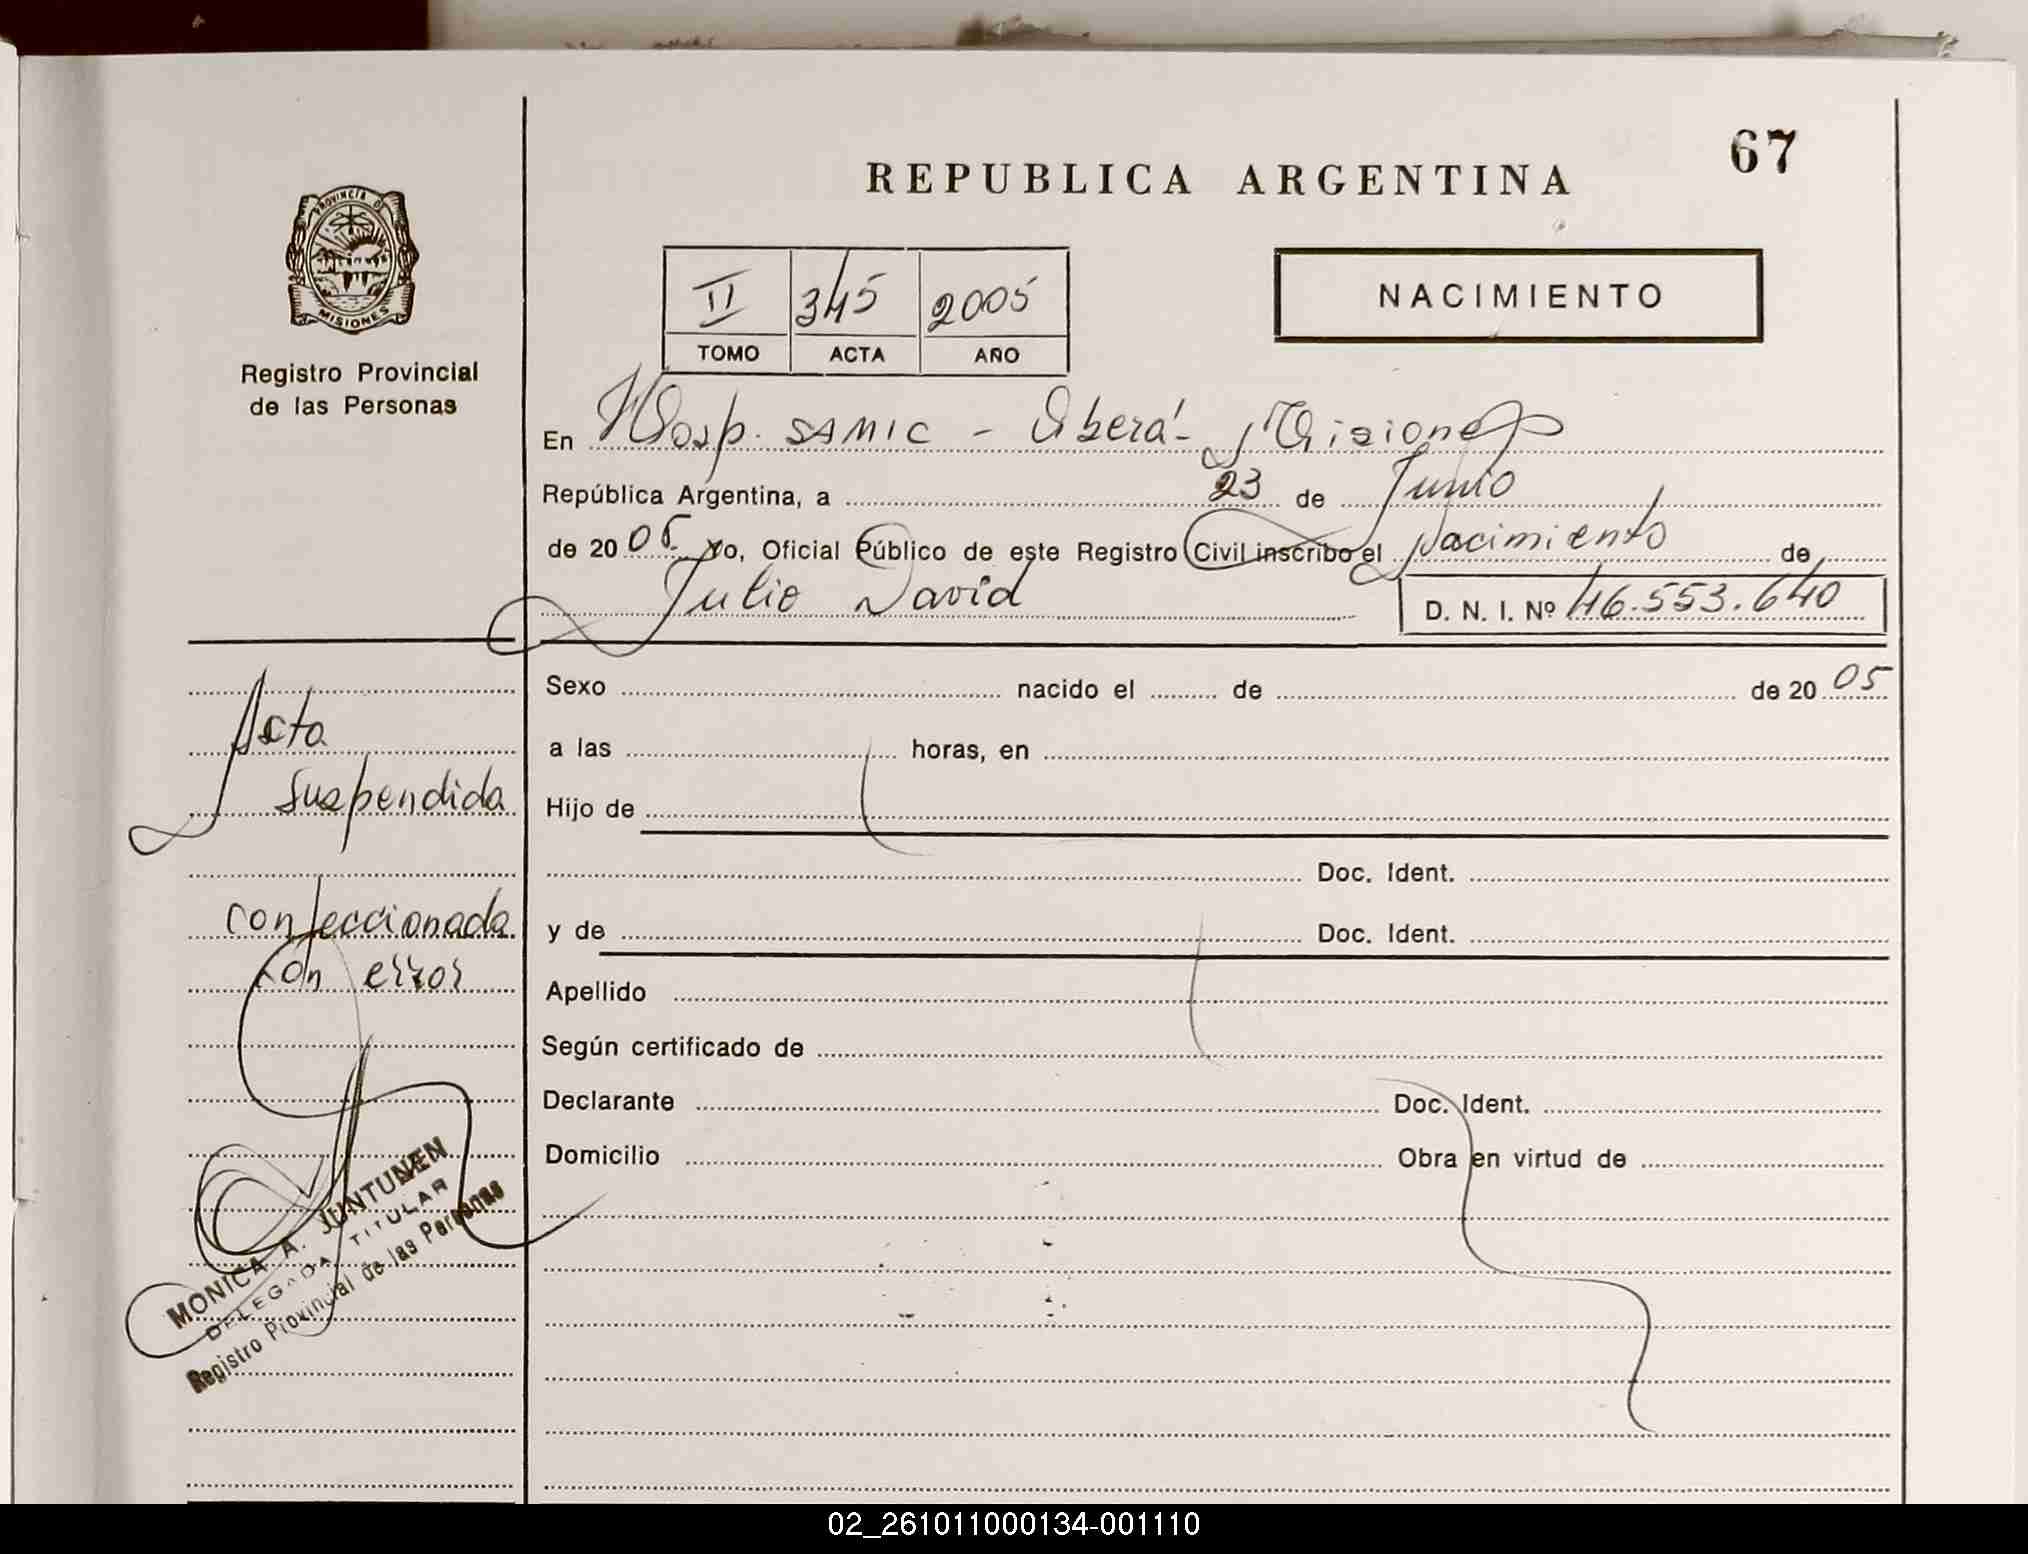 67
REPUBLICA ARGENTINA
PROVINCIA DE
MISIONES
Registro Provincial
de las Personas
II 345 2005
TOMO ACTA AÑO
NACIMIENTO
En Hosp. SAMIC - Oberá - Misiones
República Argentina, a 23 de Junio
de 20 05 Yo, Oficial Público de este Registro Civil inscribo el Nacimiento de
Julio David D. N. I. Nº 46.553.640
Sexo nacido el de de 20 05
a las horas, en
Hijo de
Doc. Ident.
y de Doc. Ident.
Apellido
Según certificado de
Declarante Doc. Ident.
Domicilio Obra en virtud de
Acta
suspendida
confeccionada
con error
MONICA A. JUNTUNEN
DELEGADA TITULAR
Registro Provincial de las Personas
02_261011000134-001110